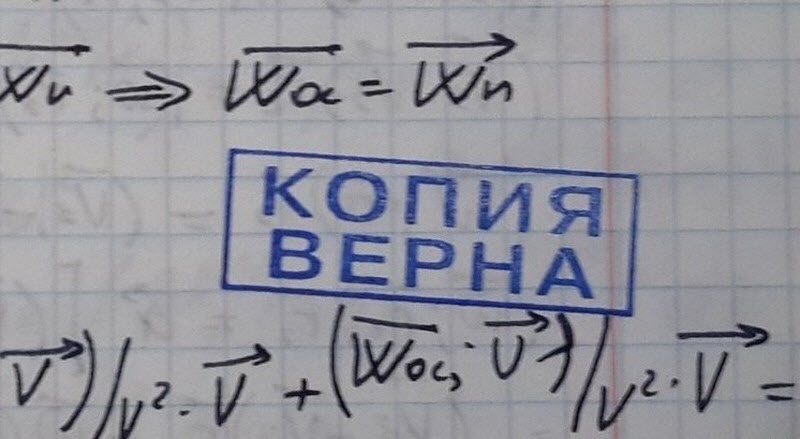 ⇒ Wос = Wn
КОПИЯ
ВЕРНА
V)/V²·V + (Wос, V)/V²·V =